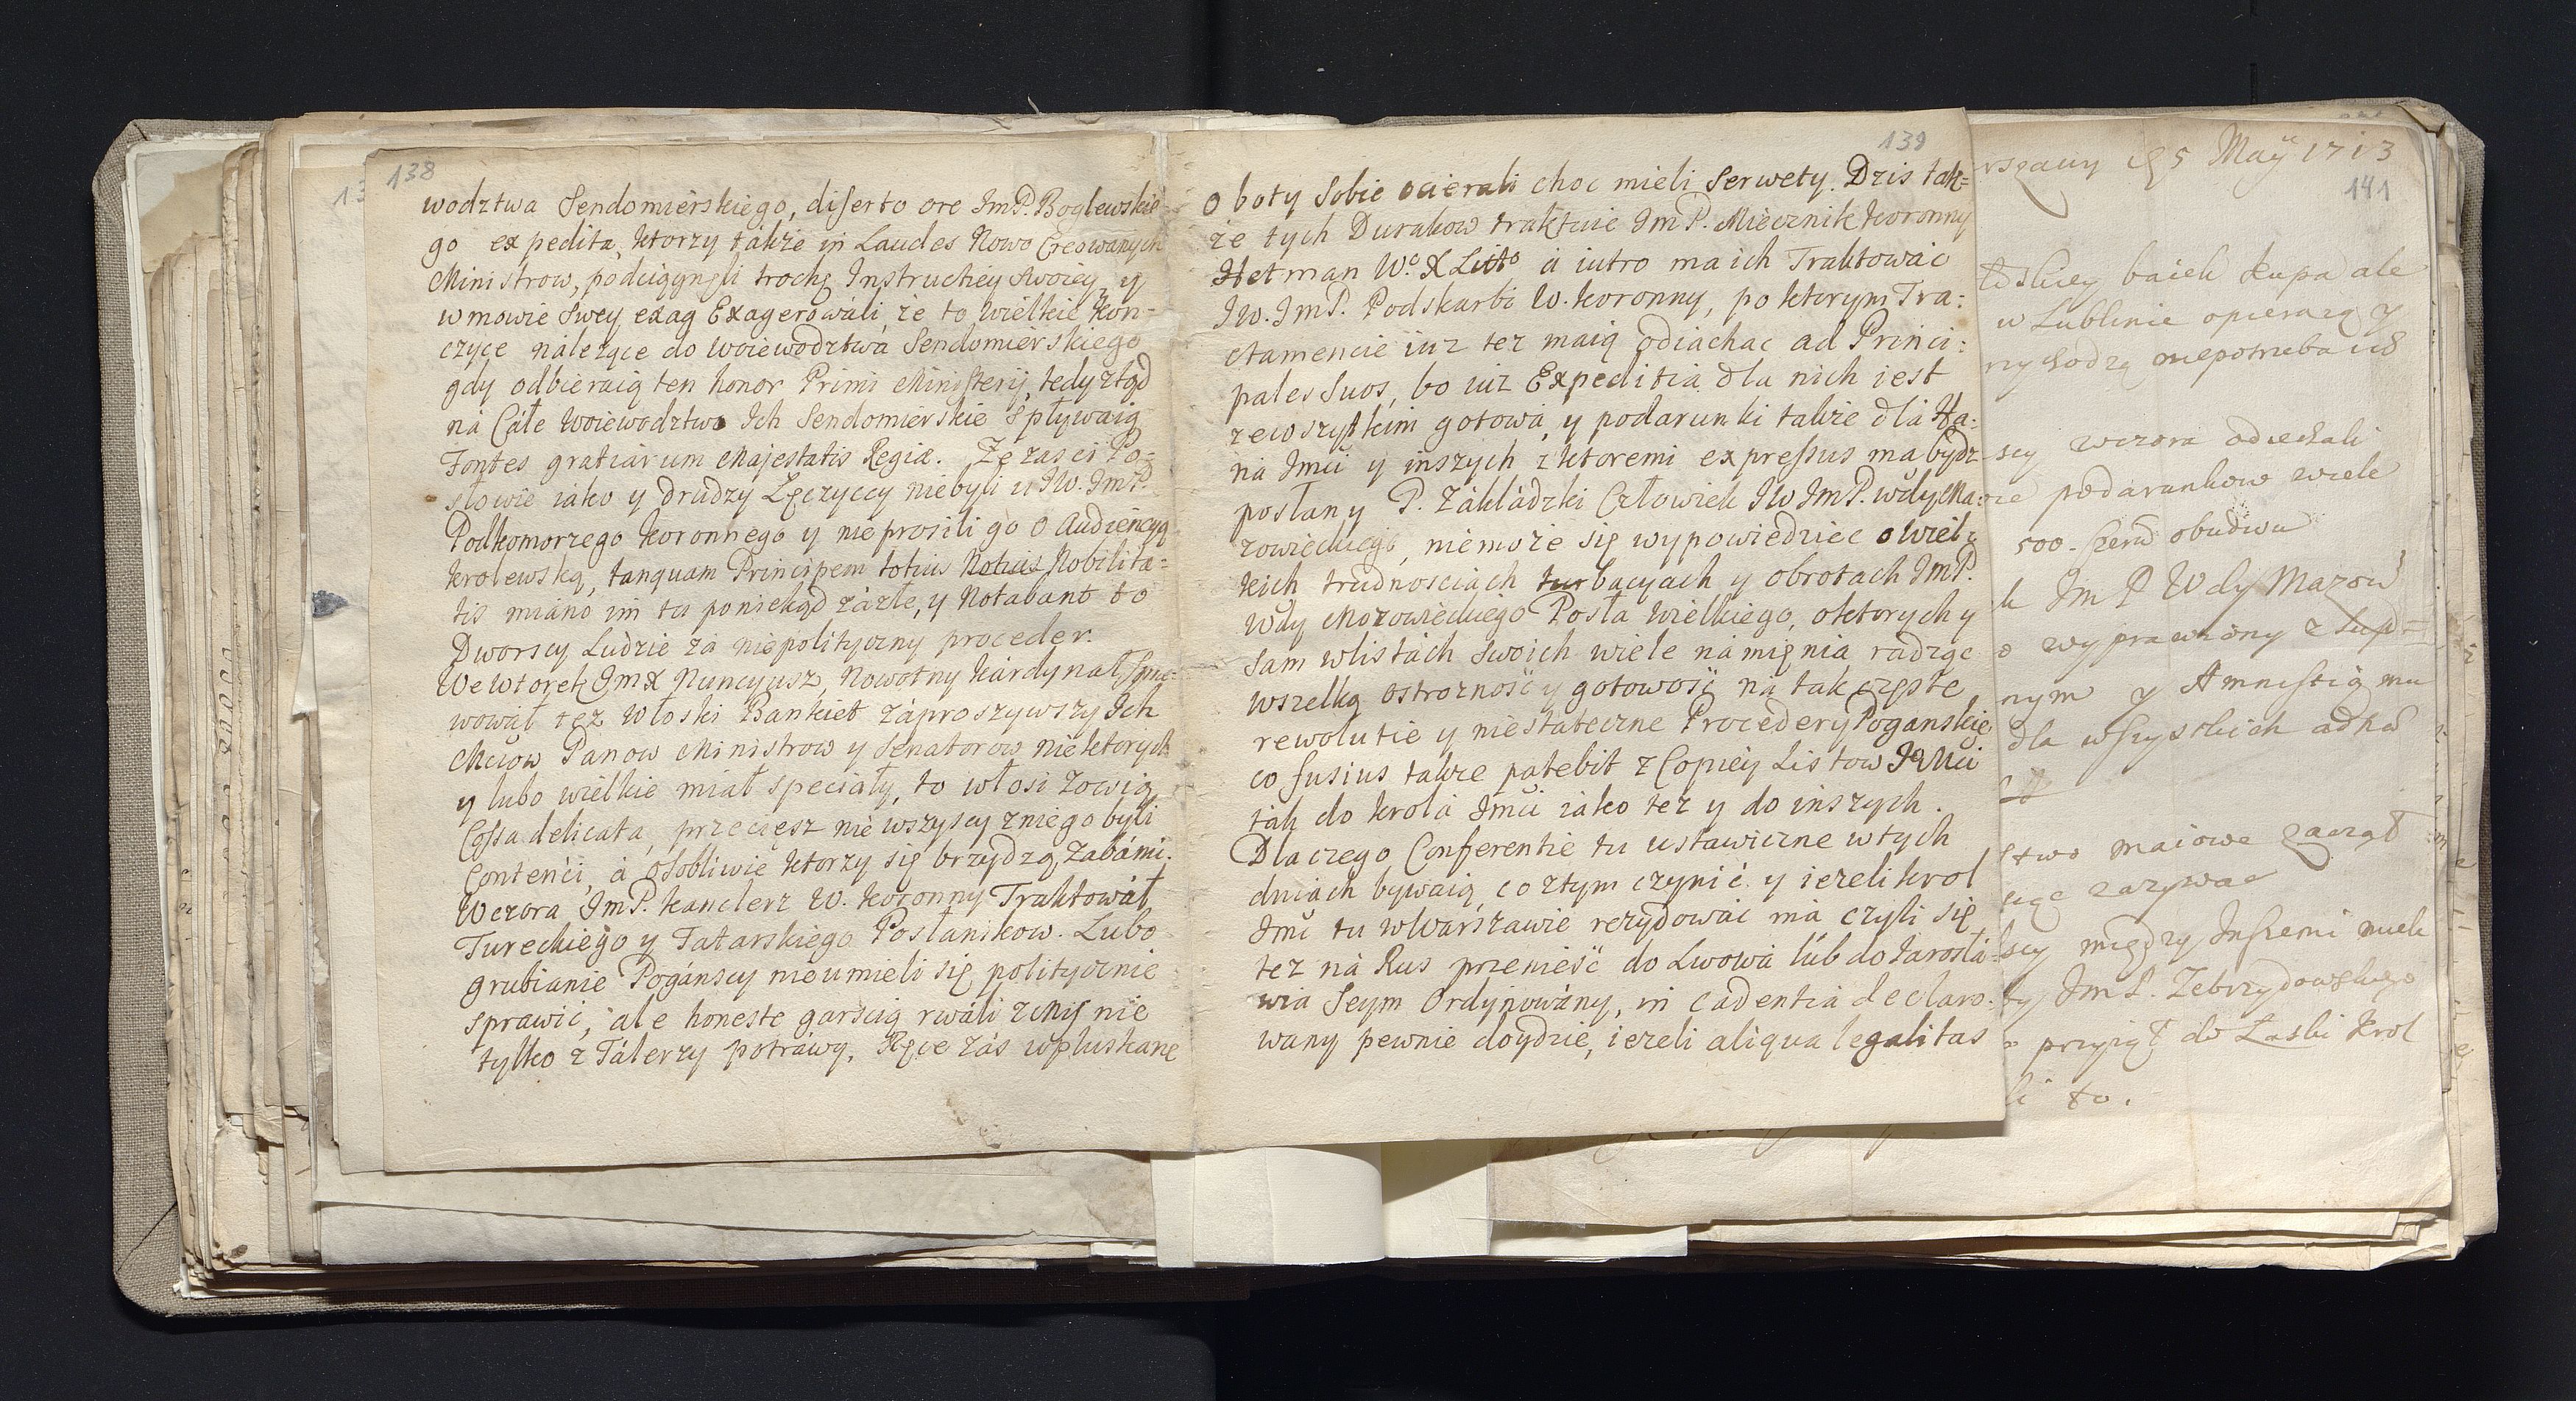 138
wodztwa Sendomierskiego, diserto ore ImP. Boglewskie-
go expedita, ktorzy także in Laudes Nowo Creowanych
Ministrow, podciągnęli trochę Instructiey swoiey, y
w mowie swey exag Exagerowáli, że to wielkie Kon-
czyce náleżące do Woiewodztwá Sendomierskiego
gdy odbieraią ten honor Primi Ministerij, tedy ztąd
ná Cáłe Woiewodztwo Ich Sendomierskie spływaią
Fontes gratiarum Majestatis Regiæ. Ze zas ci Po-
słowie iáko y drudzy Łęczyccy niebyli u JW. ImP.
Podkomorzego Koronnego y nieprosili go o Audiencyą
Krolewską, tanquam Principem totius Notius Nobilita-
tis miáno im to poniekąd zázłe, y Notabant to
Dworscy Ludzie zá niepolityczny proceder.
We wtorek ImX Nuncyusz, Nowotny Kárdynał spra-
wował tez Włoski Bankiet záproszywszy Ich
Mciow Panow Ministrow y Senatorow niektorych
y lubo wielkie miał speciały, to włosi zowią
Cossa delicata, przeciesz nie wszyscy zniego byli
Contenći, á osobliwie ktorzy się brzydzą Zabámi.
Wczora ImP. Kanclerz W. Koronny Traktował
Tureckiego y Tatarskiego Posłanikow. Lubo
grubianie Pogánscy nieumieli się politycznie
sprawić, ale honeste garscią rwáli z Mis nie
tylko z Tálerzy potráwy. Ręce zás upluskane
139
o boty sobie ocierali choc mieli Serwety. Dzis tak=
że tych Durakow traktuie ImP. Miecznik Koronny
Hetman W.o X Litto á iutro ma ich Traktowac
JW. ImP. Podskarbi W. Koronny, po ktorym Tra:
ctamencie iuz tez maią odiachac ad Princi:
pales suos, bo iuz Expeditia dla nich iest
zewszystkim gotowa, y podarunki także dla Ha:
na Imci y inszych z ktoremi expressus ma bydz
posłany P. Zákładzki Człowiek JW ImP. Wdy Ma:
zowieckiego, niemoże się wypowiedziec o wiel:
kich trudnosciach turbacyach y obrotach ImP.
Wdy Mazowieckiego Posła Wielkiego, oktorych y
sam wlistách swoich wiele námięnia, radząc
wszelką ostrozność y gotowość ná tak częste
rewolutie y niestateczne Procedery Poganskie,
co fusius takze patebit z Copiey Listow JeMci
ták do Krola Imci iáko tez y do inszych.
Dla czego Conferentie tu ustawiczne w tych
dniach bywaią, co ztym czynić y iezeli Krol
Imć tu w Warszawie rezydowác ma czyli się
tez ná Rus przenieść do Lwowa lub do Jarosłá-
wia Seym Ordynowány, in cadentia declaro-
wany pewnie doydzie, iezeli aliqua legalitas
5 Maÿ 1713
141
baiek kupa ale
w Lublinie opieraią y
niepotrzeba ich
wczora odiechali
podarunkow wiele
500. Czerw obudwu
Im P Wdy Mazow
wyprawiony
nym y Amnistią ma
dla wszystkich
maiowe zaczął
zazywac
między Inszemi
ImP. Zebrzydowskiego
przyiął do Łaski Krol
to.